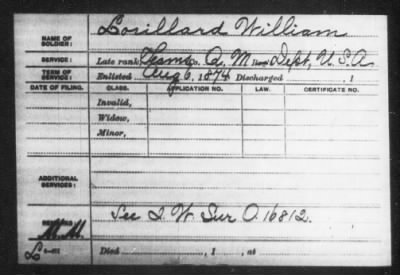 Lorillard William
NAME OF SOLDIER:
SERVICE: Late rank, Teams Co. Q. M. Dept, U.S.A
TERM OF SERVICE: Enlisted Aug 6, 1874 Discharged , 1
DATE OF FILING. CLASS. APPLICATION NO. LAW. CERTIFICATE NO.
Invalid,
Widow,
Minor,
ADDITIONAL SERVICES:
See I. W. Sur O. 16812.
Died , 1 , at